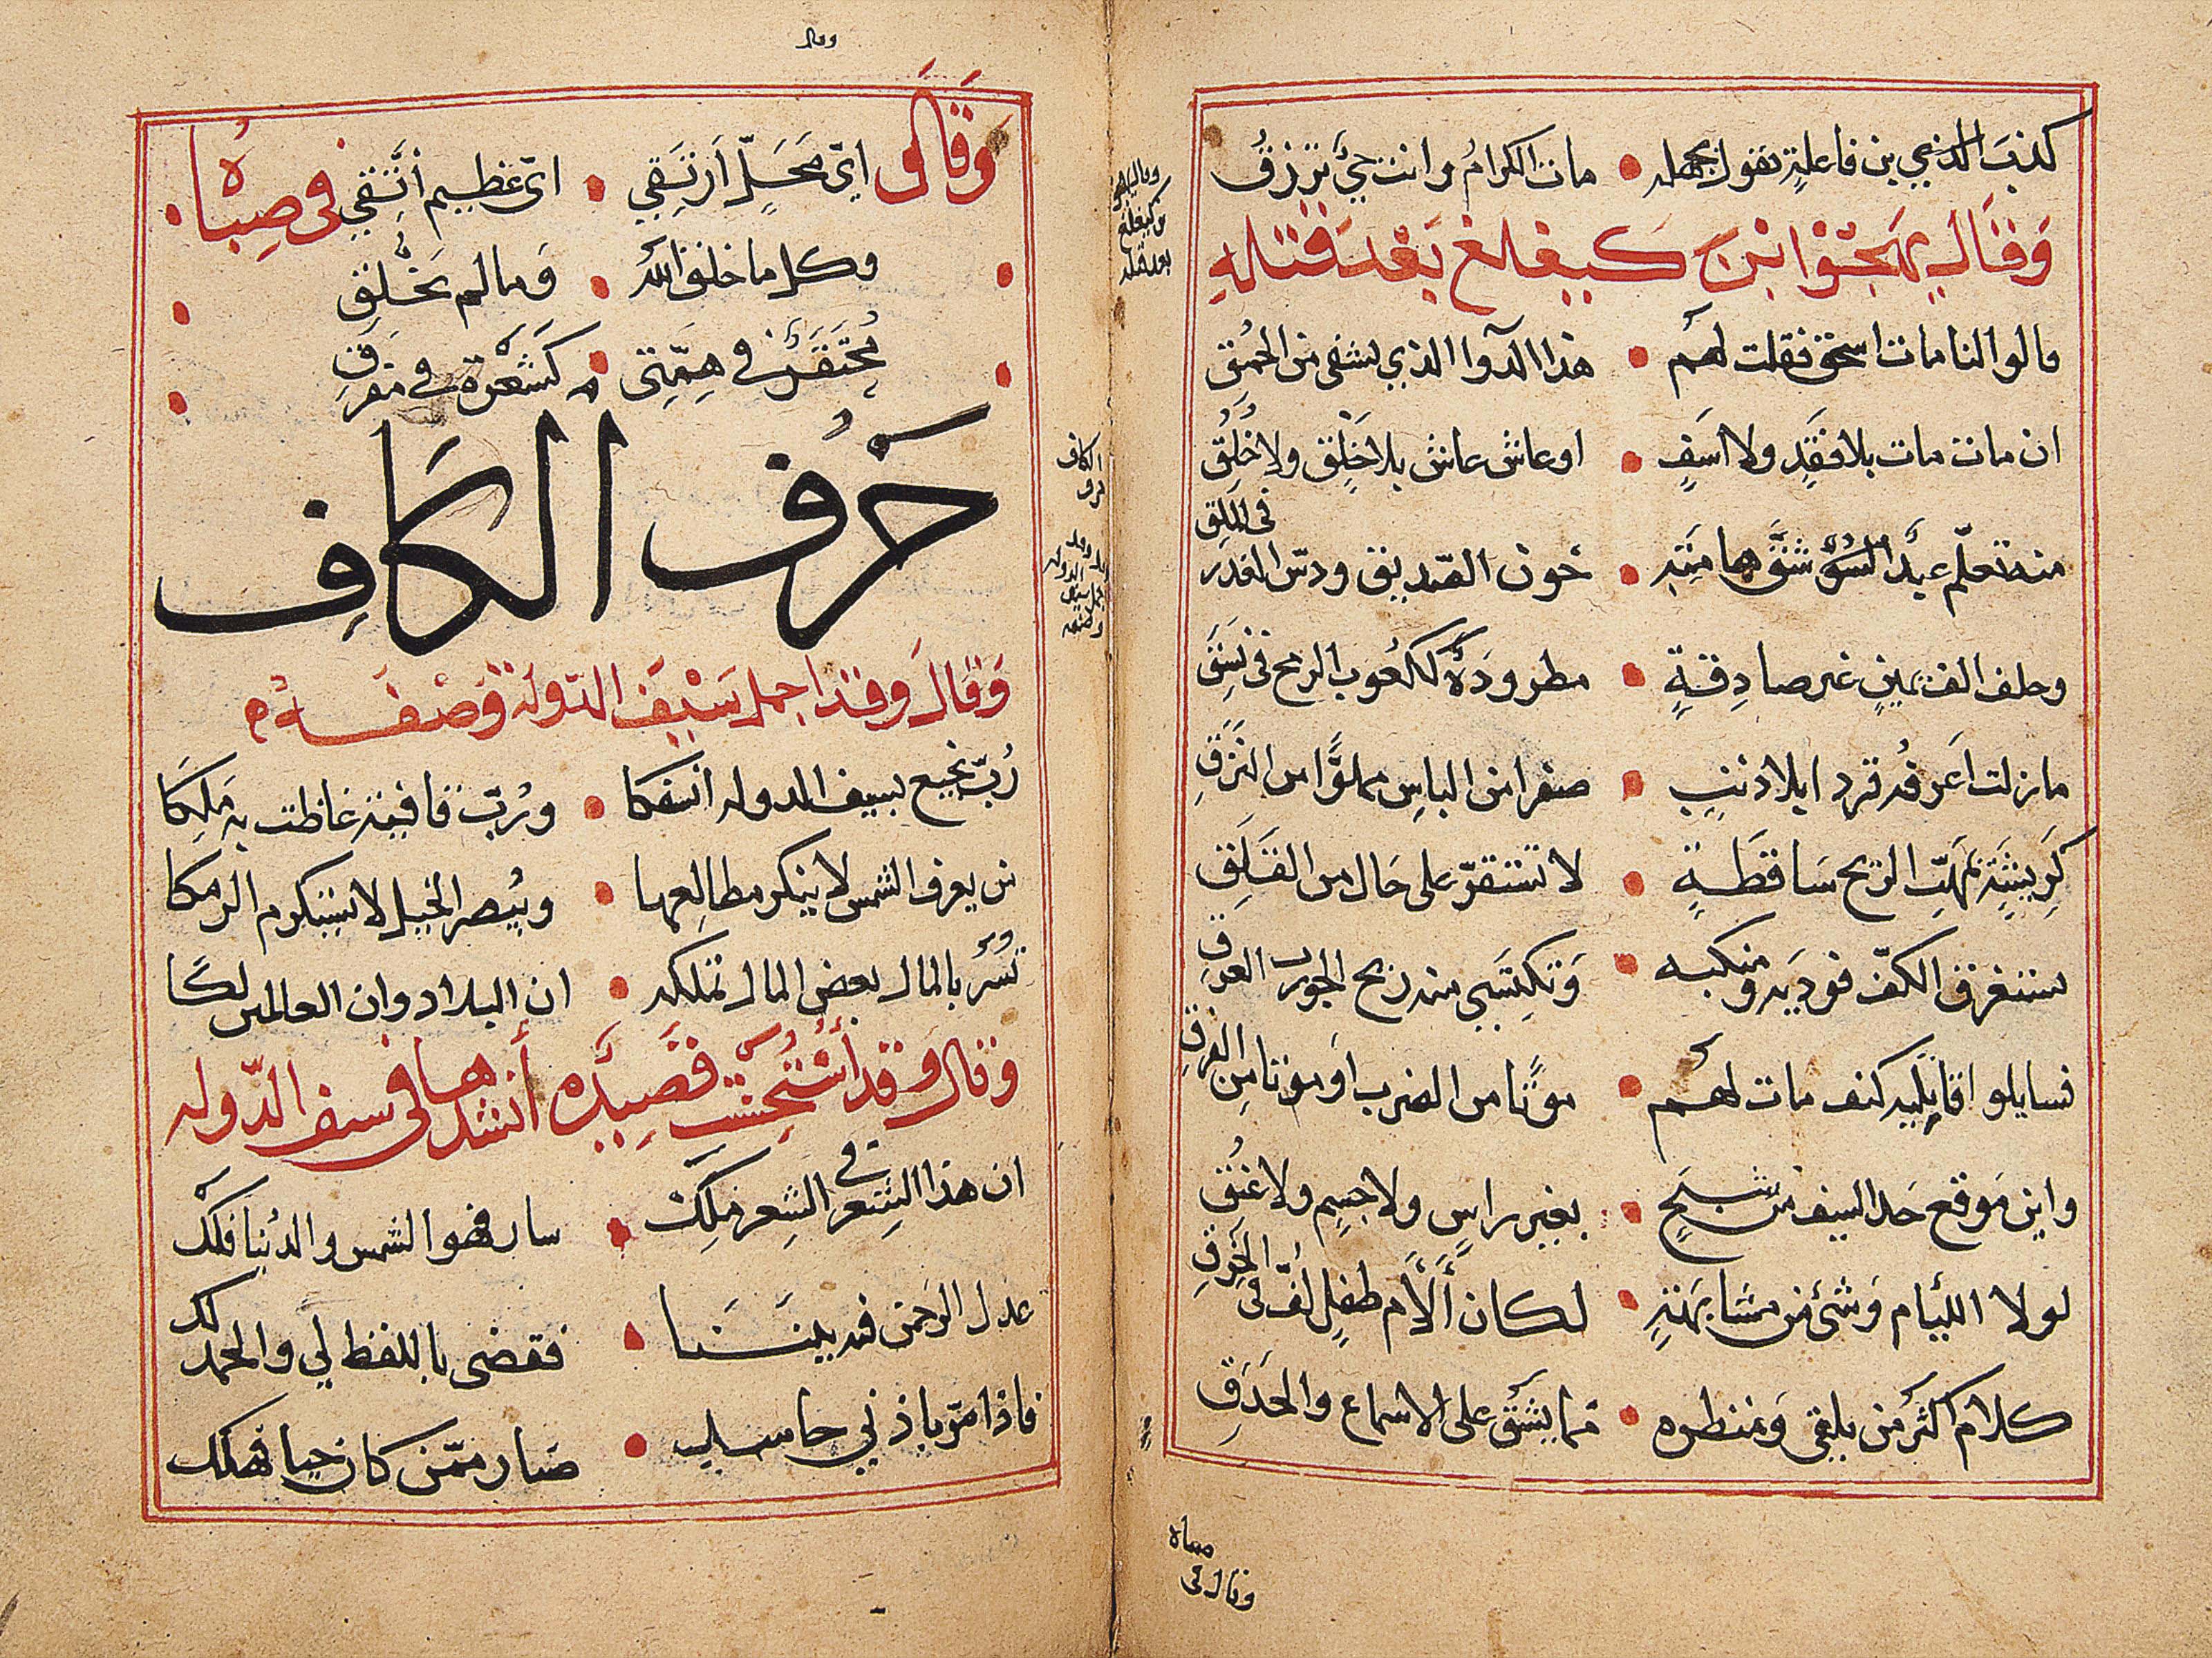 كذب ابن فاعلة يقول بجهله • مات الكرام وانت حيّ ترزقُ
وَقَالَ يَهجُوا ابن كَيغلغ بَعْدَ قتله
قالوا لنا مات اسحق فقلت لهُم • هذا الدّوا الذي يشفى من الحُمُقِ
ان مات مات بلا فقدٍ ولا اسَفٍ • او عاش عاش بلا خَلقٍ ولا خُلُقِ
منه تعلّم عبدُ السُوء شقَّ هامَتهِ • خون الصّديق ودسّ الغدر في الملَقِ
وحلف الف يمينٍ غير صادِقةٍ • مطرودةٍ ككعُوب الرمح في نَسَقِ
ما زلت اعرفُه قردا بلا ذنبٍ • صفرا من الباسِ مملوّا من النزَقِ
كرِيشةٍ بمَهَبّ الريح سَاقطَةٍ • لا تستقرّ على حَال من القَلَقِ
تستغرق الكفّ فودَيه ومنكبه • وتكتسي منه ريح الجورب العرقِ
فسايلوا قاتليه كيف مات لهُم • موتًا من الضرب او موتا من الفرقِ
واين مَوقع حَد السيف من شبَحٍ • بغير راسٍ ولا جسِمٍ ولا عُنُقِ
لولا اللئام وَشيءٌ من مشابَهةٍ • لكان ألأَم طفلٍ لُفّ في الخِرَقِ
كلام اكثر من يلقى وَمنظره • مما يشُقّ على الاسماع والحدَقِ
وقال في
صباه
وَقَالَ في صِبَاهُ
ايّ مَحَلٍّ اَرتَقِي • ايّ عظيمٍ أتَّقِي
وكل ما خلق اللهُ • وَما لم يَخْلُقِ
مُحتَقَرٌ في هِمّتِي • كَشَعْرَة في مَفرقِ
حَرْف الكَافِ
وَقَالَ وقد اجمل سَيْف الدّولة وَصْفَه
رُبّ نجيع بسيف الدوله انسفكا • ورُبّ قافية غاظت به مَلِكَا
من يعرف الشمس لا ينكر مطالعها • ويُبصر الخيل لا يستكرم الرمكا
تسُرّ بالمال بعض المال تملكه • ان البلاد وان العالمين لكَا
وقال وقد أستُحسنت قَصِيدَه أنشدها في سيف الدّوله
ان هذا الشِعر في الشعر مَلَكْ • سار فهو الشمس والدُنيا فلكْ
عدل الرحمن فيه بينَنا • فقضى باللفظ لي والحمد لك
فاذا مرّ باذني حاسدٍ • صَار ممّن كان حيا فهلك